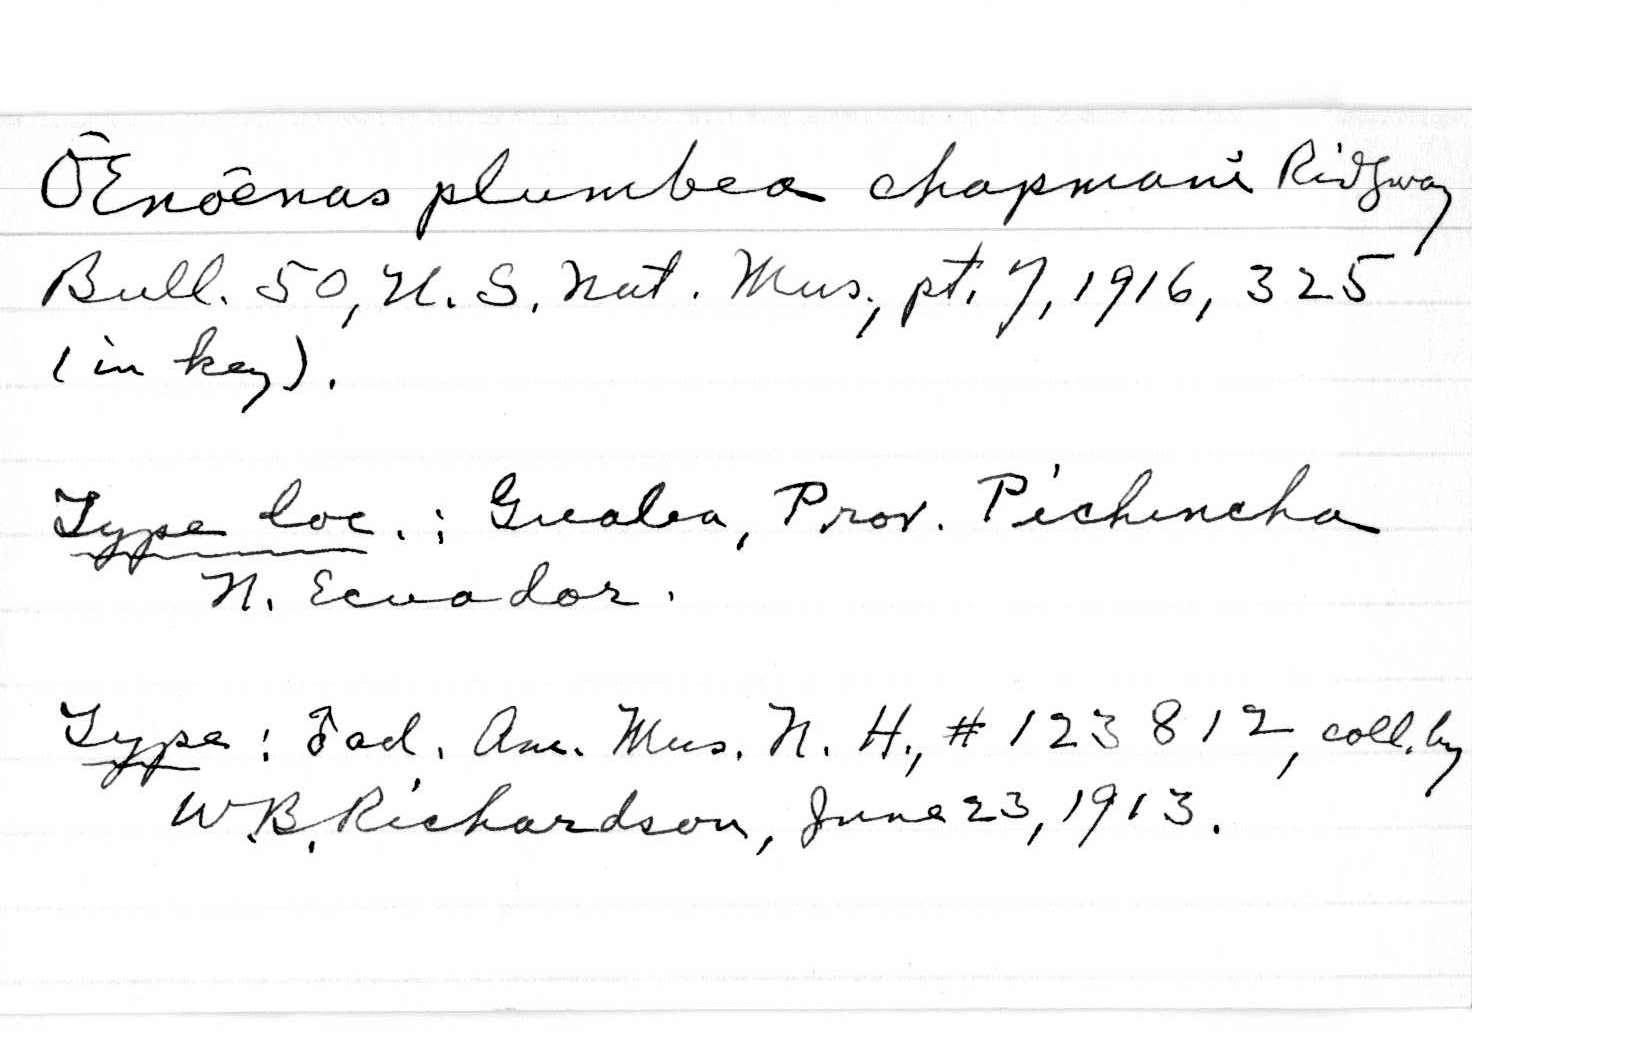 Œnoenas plumbea chapmani Ridgway
Bull. 50, U. S. Nat. Mus., pt. 7, 1916, 325
(in key).
Type loc.: Gualea, Prov. Pichincha
N. Ecuador.
Type: ♂ad. Am. Mus. N. H., # 123812, coll. by
W.B. Richardson, June 23, 1913.